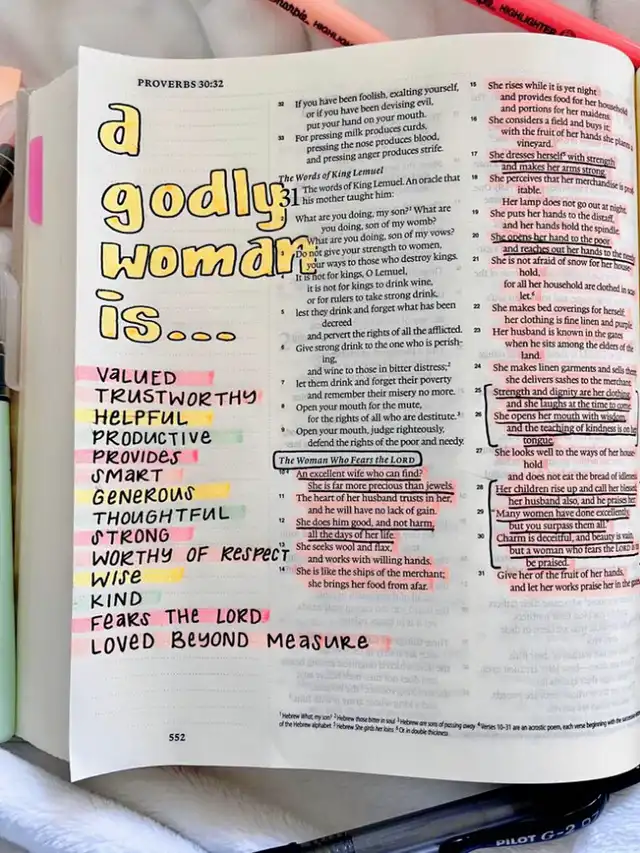 Sharpie. HIGHLIGHTER
Sharpie. HIGHLIGHTER
PROVERBS 30:32
a
godly
woman
is...
VALUED
TRUSTWORTHY
HELPFUL
PRODUCTIVE
PROVIDES
SMART
GENEROUS
THOUGHTFUL
STRONG
WORTHY OF RESPECT
WISE
KIND
FEARS THE LORD
LOVED BEYOND MEASURE
552
32 If you have been foolish, exalting yourself,
or if you have been devising evil,
put your hand on your mouth.
33 For pressing milk produces curds,
pressing the nose produces blood,
and pressing anger produces strife.
The Words of King Lemuel
31 The words of King Lemuel. An oracle that
his mother taught him:
What are you doing, my son?¹ What are
you doing, son of my womb?
What are you doing, son of my vows?
3 Do not give your strength to women,
your ways to those who destroy kings.
4 It is not for kings, O Lemuel,
it is not for kings to drink wine,
or for rulers to take strong drink,
5 lest they drink and forget what has been
decreed
and pervert the rights of all the afflicted.
6 Give strong drink to the one who is perish-
ing,
and wine to those in bitter distress;²
7 let them drink and forget their poverty
and remember their misery no more.
Open your mouth for the mute,
for the rights of all who are destitute.³
9 Open your mouth, judge righteously,
defend the rights of the poor and needy.
The Woman Who Fears the LORD
10⁴ An excellent wife who can find?
She is far more precious than jewels.
11 The heart of her husband trusts in her,
and he will have no lack of gain.
12 She does him good, and not harm,
all the days of her life.
13 She seeks wool and flax,
and works with willing hands.
14 She is like the ships of the merchant;
she brings her food from afar.
15 She rises while it is yet night
and provides food for her household
and portions for her maidens.
16 She considers a field and buys it;
with the fruit of her hands she plants a
vineyard.
17 She dresses herself⁵ with strength
and makes her arms strong.
18 She perceives that her merchandise is prof-
itable.
Her lamp does not go out at night.
19 She puts her hands to the distaff,
and her hands hold the spindle.
20 She opens her hand to the poor
and reaches out her hands to the needy.
21 She is not afraid of snow for her house-
hold,
for all her household are clothed in scar-
let.⁶
22 She makes bed coverings for herself;
her clothing is fine linen and purple.
23 Her husband is known in the gates
when he sits among the elders of the
land.
24 She makes linen garments and sells them;
she delivers sashes to the merchant.
25 Strength and dignity are her clothing,
and she laughs at the time to come.
26 She opens her mouth with wisdom,
and the teaching of kindness is on her
tongue.
27 She looks well to the ways of her house-
hold
and does not eat the bread of idleness.
28 Her children rise up and call her blessed;
her husband also, and he praises her:
29 "Many women have done excellently,
but you surpass them all."
30 Charm is deceitful, and beauty is vain,
but a woman who fears the LORD is to
be praised.
31 Give her of the fruit of her hands,
and let her works praise her in the gates.
¹ Hebrew What, my son? ² Hebrew those bitter in soul ³ Hebrew are sons of passing away ⁴ Verses 10–31 are an acrostic poem, each verse beginning with the successive
of the Hebrew alphabet ⁵ Hebrew She girds her loins ⁶ Or in double thickness
PILOT G-2